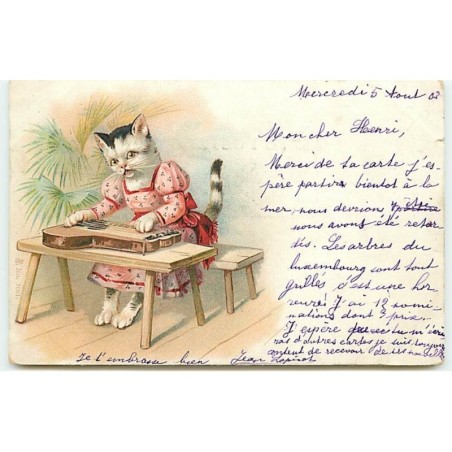 Mercredi 5 Aout 03
Mon cher Henri,
Merci de ta carte j'es-
père partir bientôt à la
mer, nous devrions
nous avons été retar
dés. Les arbres du
luxembourg sont tout
grillés, c'est une hor
reur! J'ai 12 nomi-
nations dont 3 prix.
J'espère que tu m'écri
ras d'autres cartes je suis toujours
content de recevoir de
Je t'embrasse bien Jean